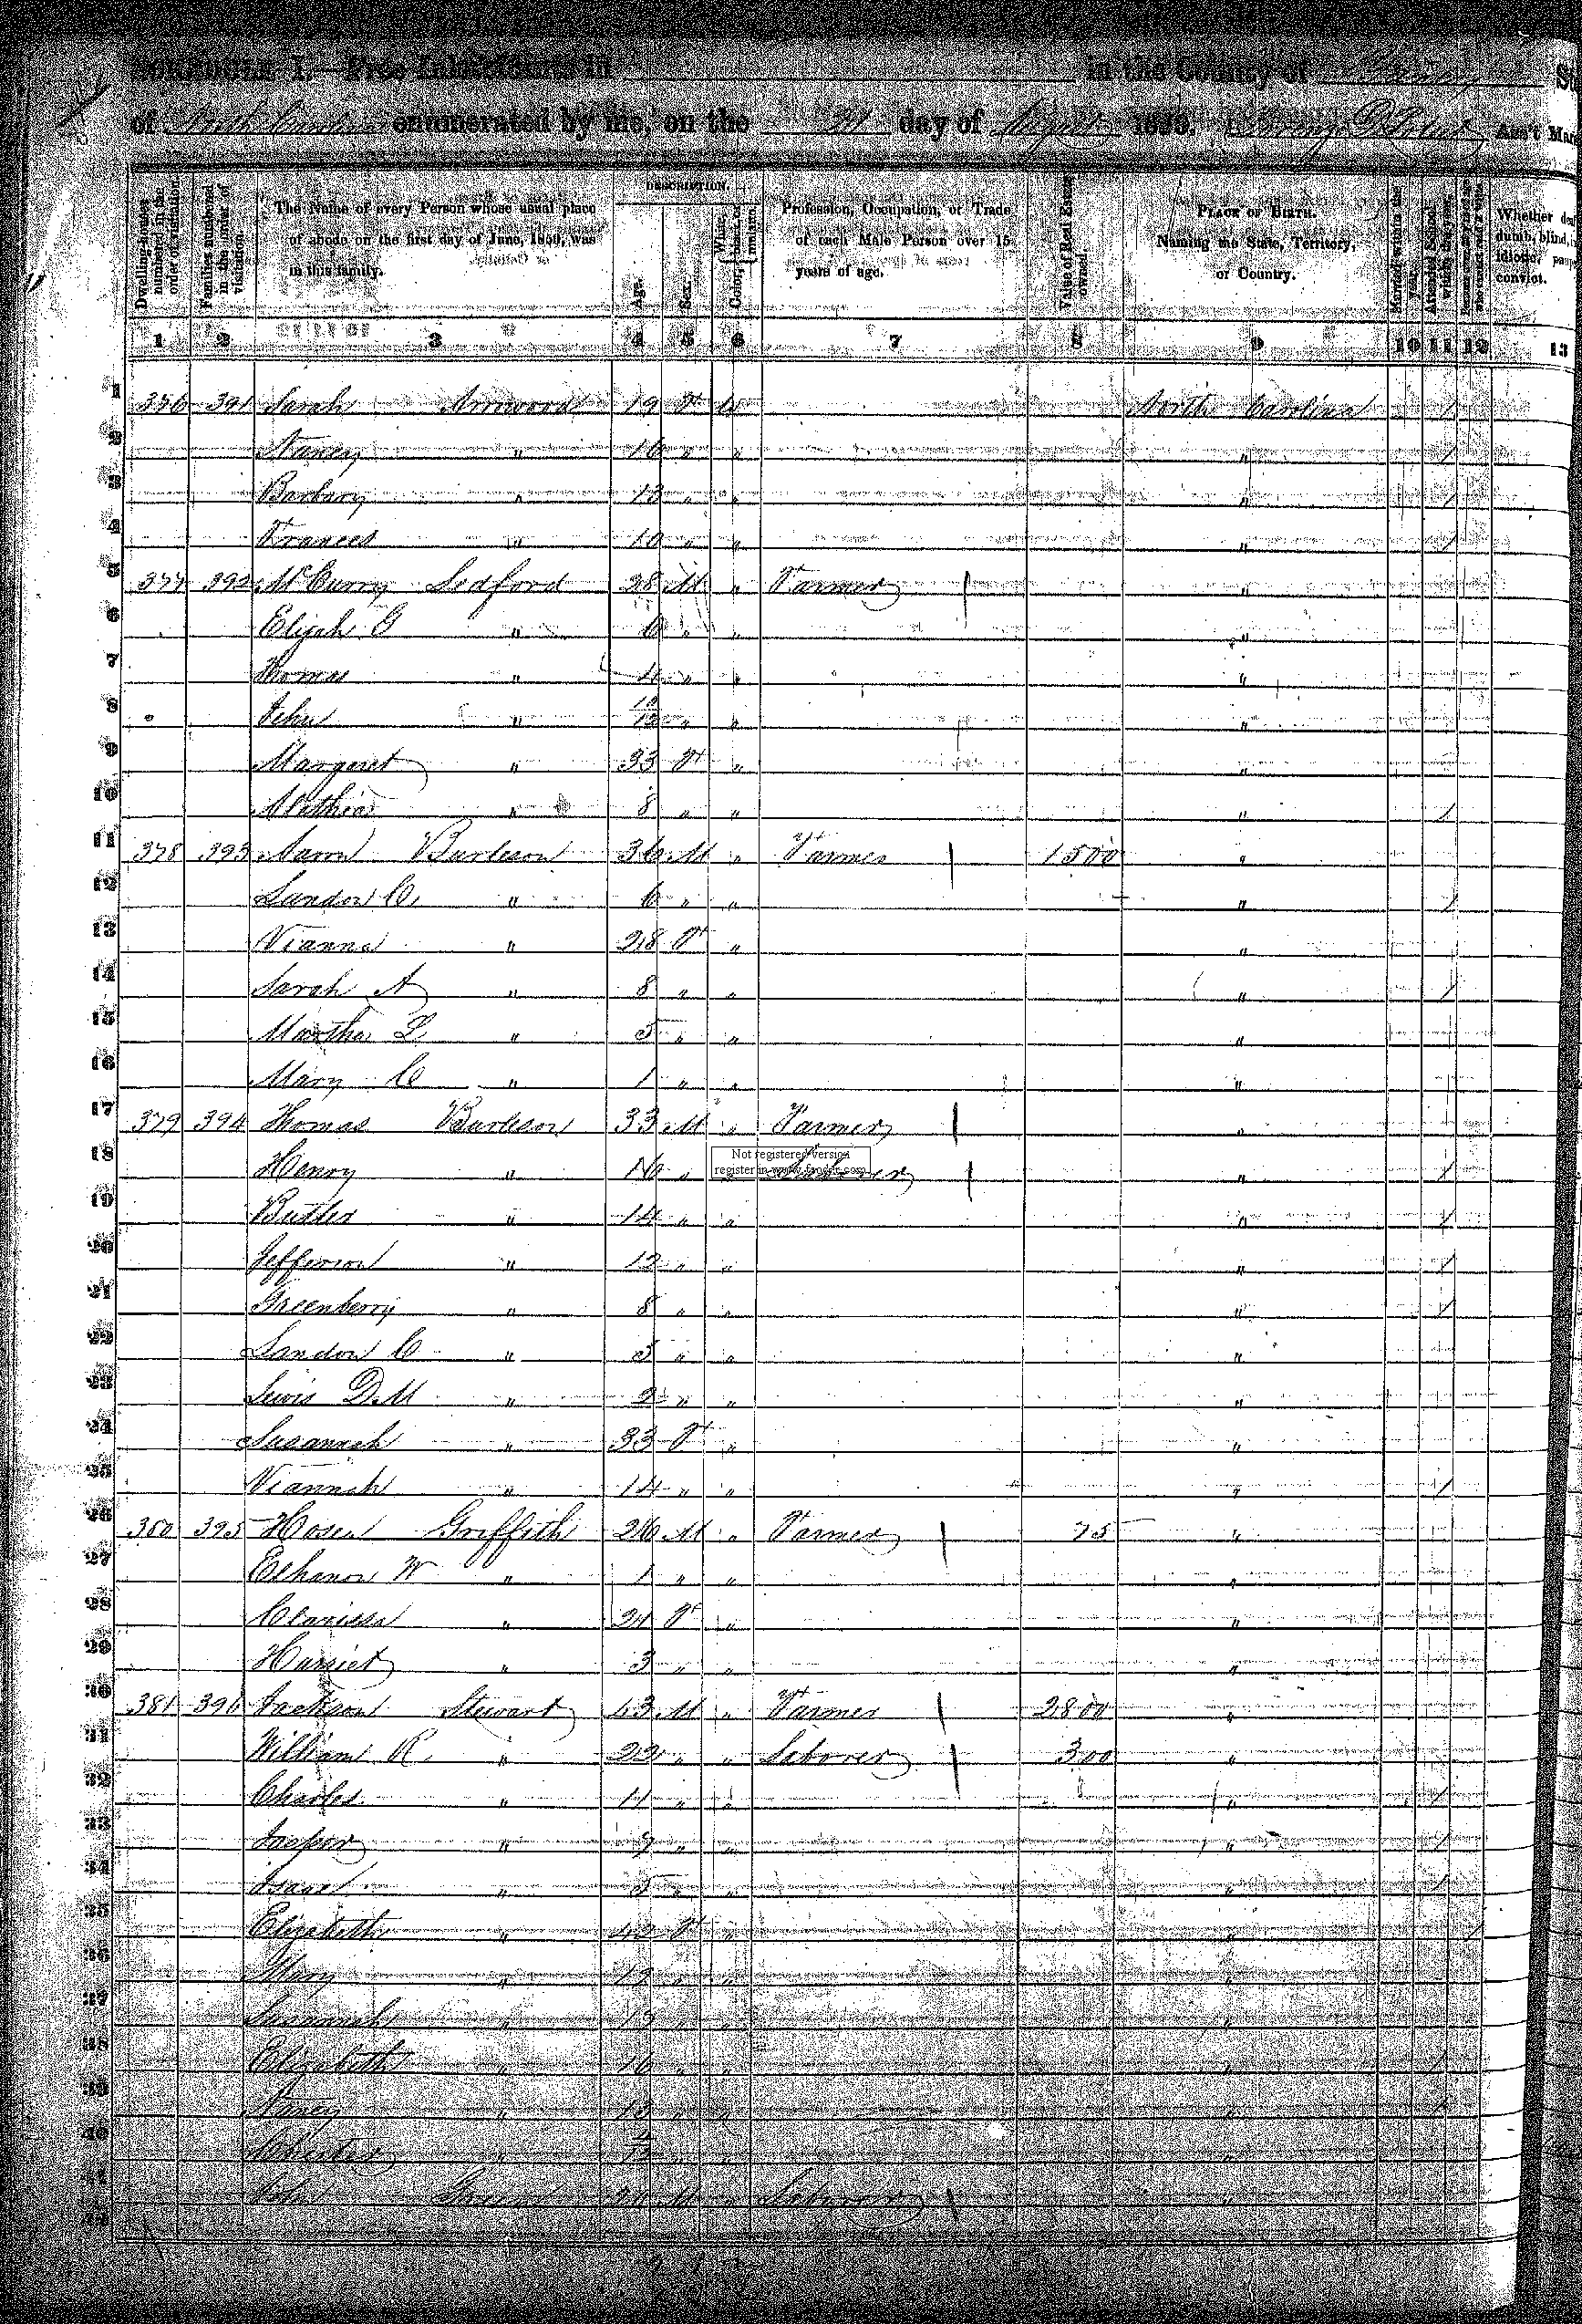 SCHEDULE I.—Free Inhabitants in in the County of
of North Carolina enumerated by me, on the 31 day of August 1850. Ass't
Dwelling-houses numbered in the order of visitation.
Families numbered in the order of visitation.
The Name of every Person whose usual place of abode on the first day of June, 1850, was in this family.
DESCRIPTION.
Age.
Sex.
Color, White, black, or mulatto.
Profession, Occupation, or Trade of each Male Person over 15 years of age.
Value of Real Estate owned.
PLACE OF BIRTH. Naming the State, Territory, or Country.
Married within the year.
Attended School within the year.
Whether deaf dumb, blind, idiotic, convict.
1 2 3 4 5 6 7 8 9 10 11 12 13
1 376 391 Sarah Arrwood 19 F W North Carolina /
2 Nancy " 16 " " " /
3 Barbary " 13 " " " /
4 Frances " 10 " " " /
5 377 392 McCurry Ledford 28 M " Farmer "
6 Elijah G " 6 " " "
7 Thomas " 4 " " "
8 Jehu " 10/12 " " "
9 Margaret " 33 F " "
10 Alethia " 8 " " " /
11 378 393 Aaron Burleson 36 M " Farmer 1500 "
12 Landon C. " 6 " " " /
13 Vianna " 28 F " "
14 Sarah A " 8 " " " /
15 Martha L " 5 " " "
16 Mary C " 1 " " "
17 379 394 Thomas Burleson 33 M " Farmer "
Not registered version
register in www.
18 Henry " 16 " Laborer " /
19 Butler " 14 " " " /
20 Jefferson " 12 " " " /
21 Greenberry " 8 " " " /
22 Landon C " 5 " " "
23 Lewis D. M " 2 " " "
24 Susannah " 33 F " "
25 Viannah " 14 " " " /
26 380 395 Hosea Griffith 26 M " Farmer 75 "
27 Elhanon W " 1 " " "
28 Clarissa " 24 F " "
29 Harriet " 3 " " "
30 381 396 Jackson Stewart 43 M " Farmer 2800 "
31 William R. " 22 " " Laborer 300 "
32 Charles " 11 " " " /
33 Jasper " 9 " " " /
34 Isaac " 5 " " " /
35 Elizabeth " 42 F " " /
36 Mary " " " "
37 Susannah " " " "
38 Elizabeth " 16 " " " /
39 Nancy " 13 " " " /
40 "
41 John M " Laborer "
42